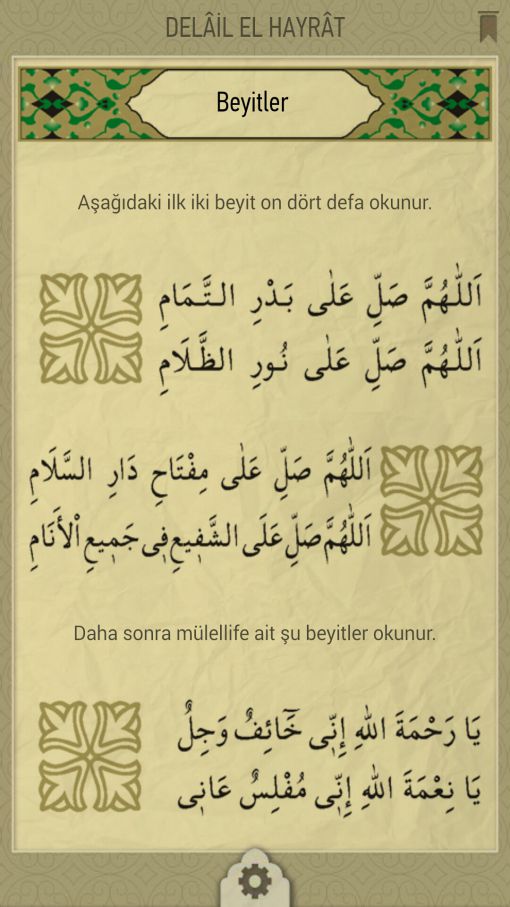 DELÂİL EL HAYRÂT
Beyitler
Aşağıdaki ilk iki beyit on dört defa okunur.
اَللّٰهُمَّ صَلِّ عَلٰى بَدْرِ التَّمَامِ
اَللّٰهُمَّ صَلِّ عَلٰى نُورِ الظَّلَامِ
اَللّٰهُمَّ صَلِّ عَلٰى مِفْتَاحِ دَارِ السَّلَامِ
اَللّٰهُمَّ صَلِّ عَلَى الشَّفٖيعِ فٖى جَمٖيعِ اْلأَنَامِ
Daha sonra mülellife ait şu beyitler okunur.
يَا رَحْمَةَ اللّٰهِ إِنّٖى خَٓائِفٌ وَجِلٌ
يَا نِعْمَةَ اللّٰهِ إِنّٖى مُفْلِسٌ عَانٖى